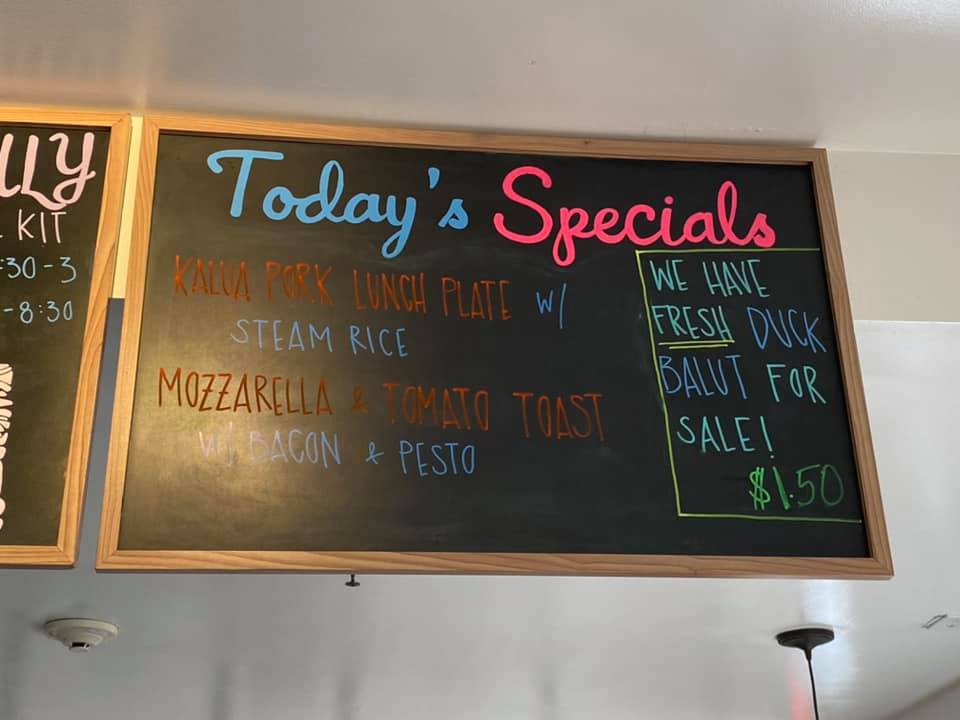 LLY
KIT
:30-3
-8:30
Today's Specials
KALUA PORK LUNCH PLATE W/
STEAM RICE
MOZZARELLA & TOMATO TOAST
W/ BACON & PESTO
WE HAVE
FRESH DUCK
BALUT FOR
SALE!
$1.50